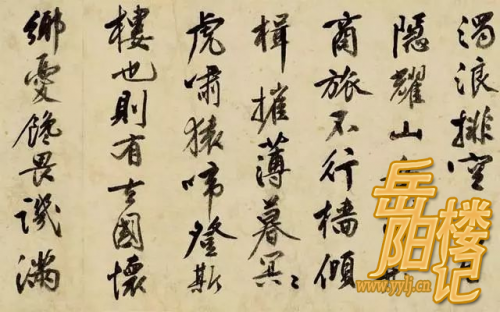 濁浪排空
隱耀山
商旅不行檣傾
楫摧薄暮冥〻
虎嘯猿啼登斯
樓也則有去國懷
鄉憂讒畏譏滿
岳阳楼记
www.yylj.cn